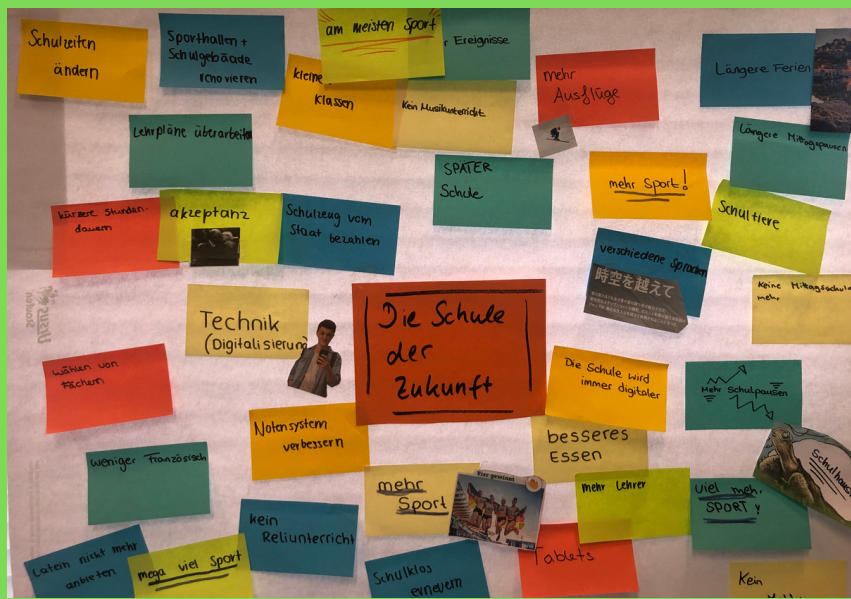 Schulzeiten
ändern
Sporthallen +
Schulgebäude
renovieren
am meisten Sport
Ereignisse
kleine
Klassen
Kein Musikunterricht
mehr
Ausflüge
Längere Ferien
Lehrpläne überarbeiten
SPÄTER
Schule
mehr Sport!
Längere Mittagspausen
kürzere Stunden-
dauern
akzeptanz
Schulzeug vom
Staat bezahlen
verschiedene Sprachen
時空を越えて
Schultiere
Keine Mittagsschule
mehr
Technik
(Digitalisierung
Die Schule
der
Zukunft
Wählen von
Fächern
Die Schule wird
immer digitaler
Mehr Schulpausen
Notensystem
verbessern
besseres
Essen
weniger Französisch
mehr
Sport
Vier gewinnt
mehr Lehrer
viel meh.
SPORT!
Schulhaus
kein
Reliunterricht
Latein nicht mehr
anbieten
mega viel Sport
Schulklos
erneuern
Tablets
Kein